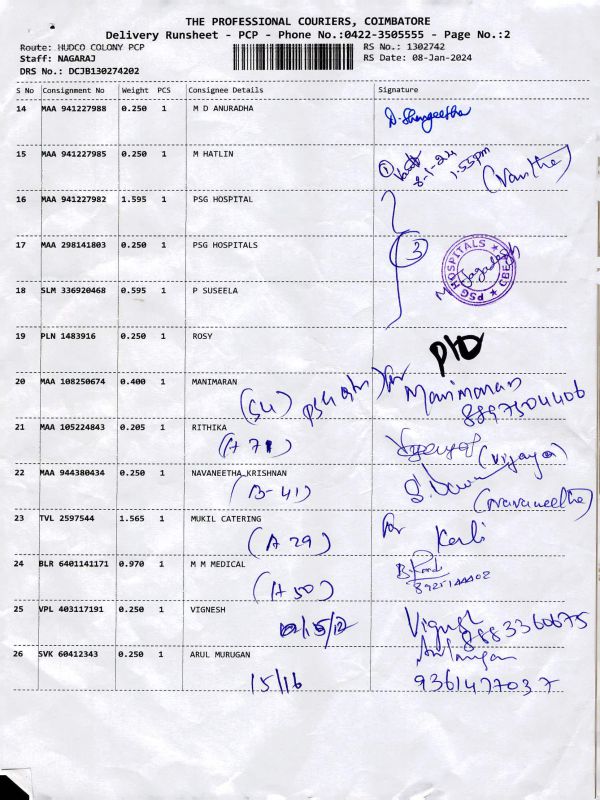 THE PROFESSIONAL COURIERS, COIMBATORE
Delivery Runsheet - PCP - Phone No.:0422-3505555 - Page No.:2
Route: HUDCO COLONY PCP
Staff: NAGARAJ
DRS No.: DCJB130274202
RS No.: 1302742
RS Date: 08-Jan-2024
S No Consignment No Weight PCS Consignee Details Signature
14 MAA 941227988 0.250 1 M D ANURADHA
15 MAA 941227985 0.250 1 M HATLIN 8-1-24 1.55pm
16 MAA 941227982 1.595 1 PSG HOSPITAL
17 MAA 298141803 0.250 1 PSG HOSPITALS 3 PSG HOSPITALS
18 SLM 336920468 0.595 1 P SUSEELA
19 PLN 1483916 0.250 1 ROSY
20 MAA 108250674 0.400 1 MANIMARAN for Manimaran
8897504406
21 MAA 105224843 0.205 1 RITHIKA (Vijaya)
(A 71)
22 MAA 944380434 0.250 1 NAVANEETHA KRISHNAN
(B-41) (Navaneetha)
23 TVL 2597544 1.565 1 MUKIL CATERING for
(A 29)
24 BLR 6401141171 0.970 1 M M MEDICAL
(A 50)
25 VPL 403117191 0.250 1 VIGNESH Vignesh
8883360675
26 SVK 60412343 0.250 1 ARUL MURUGAN
15/16 9361477037